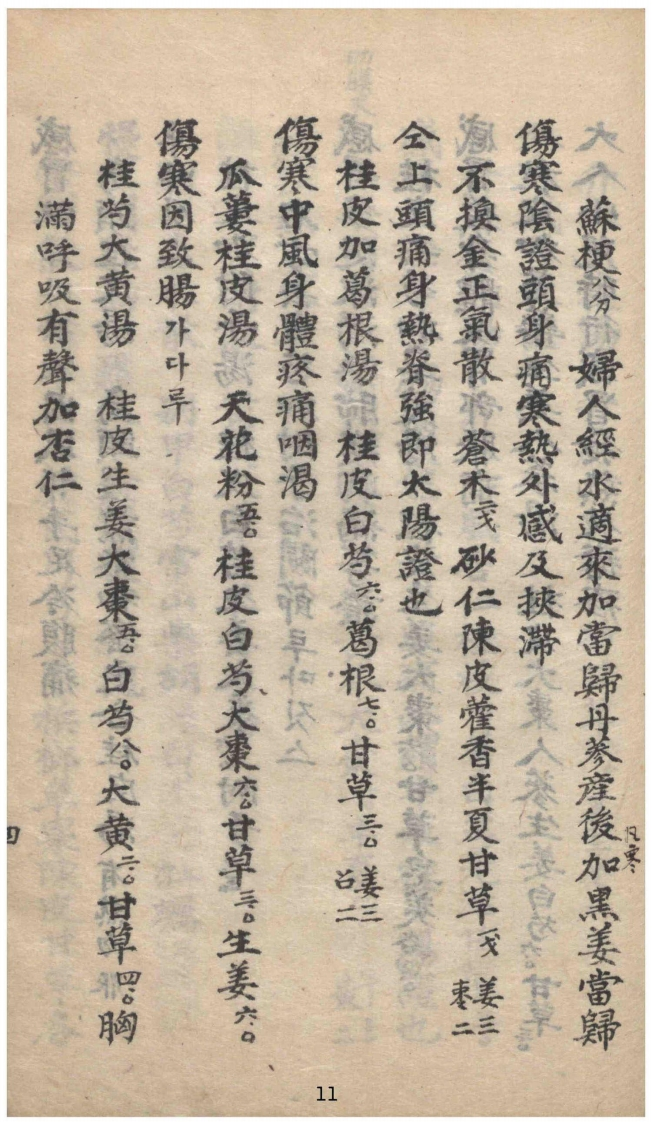 蘇梗八分 婦人經水適來加當歸丹蔘産後加黒姜當歸
凡寒
傷寒陰證頭身痛寒熱外感及挾滯
不換金正氣散 蒼朮二戋 砂仁陳皮藿香半夏甘草一戋 姜三枣二
仝上頭痛身熱脊強即太陽證也
桂皮加葛根湯 桂皮白芍六.○葛根七.○甘草三.○ 姜三召二
傷寒中風身體疼痛咽渴
瓜蔞桂皮湯 天花粉五.○桂皮白芍大棗六.○甘草三.○生姜六.○
傷寒因致腸가다루
桂芍大黄湯 桂皮生姜大棗五.○白芍八.○大黄二.○甘草四.○胸
滿呼吸有聲加杏仁
四
11